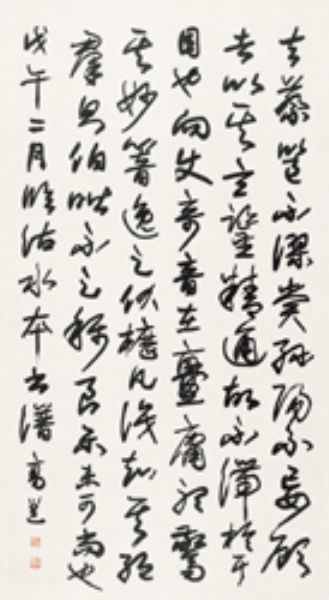 夫蔡邕不謬賞孫陽不妄顧
者以其玄鑒精通故不滯於耳
目也向使奇音在爨庸聽驚
其妙響逸足伏櫪凡識知其絕
群則伯喈不足稱良樂未可尚也
戊午二月臨沽水本書譜 高邕